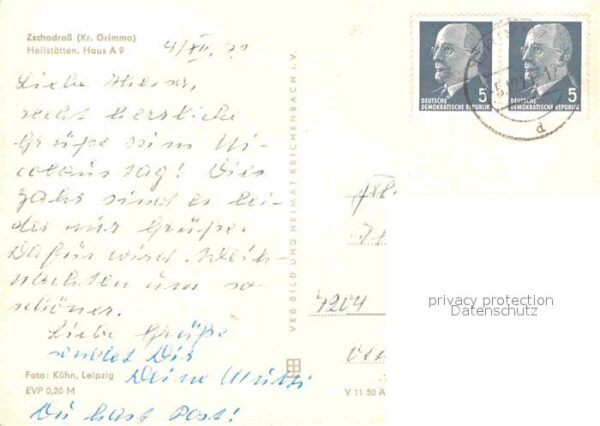 Zschadraß (Kr. Grimma)
Heilstätten, Haus A 9
4/XII. 71
Liebe
recht herzliche
Grüße zum Ni-
colaustag! Dies
Jahr sind es lei-
der nur Grüße.
Dafür wird Weih-
nachten um so
schöner.
Liebe Grüße
sendet Dir
Deine Mutti
Du hast Post!
Foto: Kühn, Leipzig
EVP 0,20 M
VEB BILD UND HEIMAT REICHENBACH i. V.
V 11 50 A
DEUTSCHE
DEMOKRATISCHE REPUBLIK
5
DEUTSCHE
DEMOKRATISCHE REPUBLIK
5
d
7204
privacy protection
Datenschutz